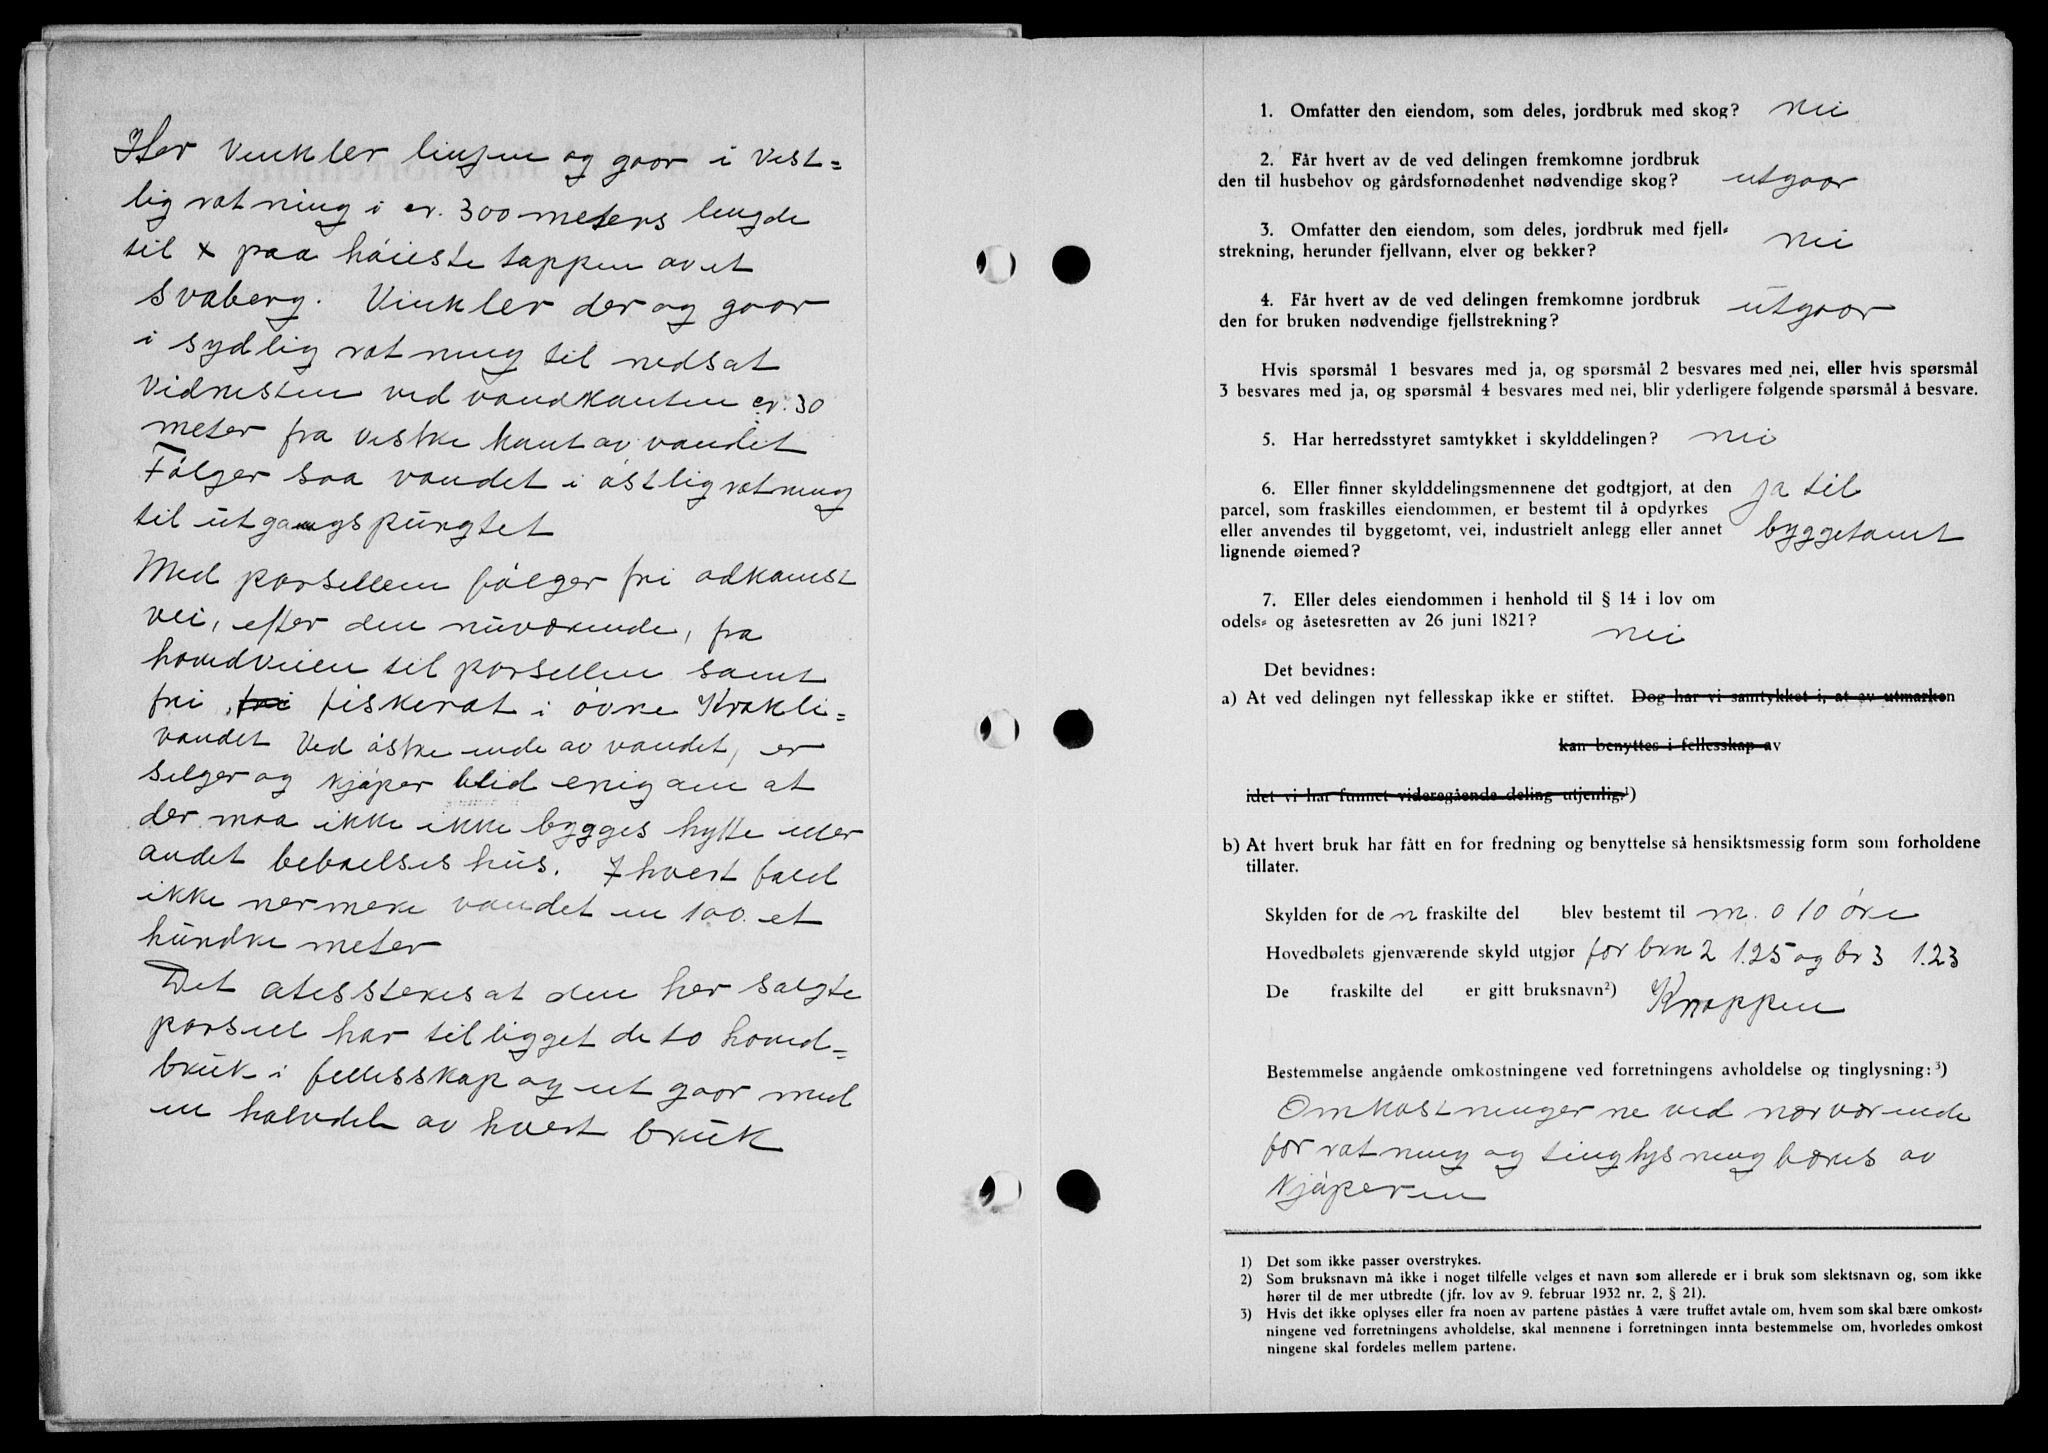 Her vinkler linjen og gaar i vest=
lig ratning i cr. 300 meters lengde
til x paa høieste tappen av et
svaberg. Vinkler der og gaar
i sydlig ratning til nedsat
vidnesten ved vandkanten cr. 30
meter fra vestre kant av vandet
Følger saa vandet i østlig ratning
til utgangspungtet
Med parsellem følger fri adkamst
vei, efter den nuværende, fra
hovedveien til parsellen samt
fri, fri fiskerat i øvre Krokli=
vandet Ved østre ende av vandet, er
selger og kjøper blid enig am at
der maa ikke ikke bygges hytte eller
andet beboelses hus. I hvert fald
ikke nermere vandet en 100. et
hundre meter
Det atesteres at den her salgte
parsell har tilligget de to hoved=
bruk i fellesskap og ut gaar med
en halvdel av hvert bruk
1. Omfatter den eiendom, som deles, jordbruk med skog? nei
2. Får hvert av de ved delingen fremkomne jordbruk
den til husbehov og gårdsfornødenhet nødvendige skog? utgaar
3. Omfatter den eiendom, som deles, jordbruk med fjell=
strekning, herunder fjellvann, elver og bekker? nei
4. Får hvert av de ved delingen fremkomne jordbruk
den for bruken nødvendige fjellstrekning? utgaar
Hvis spørsmål 1 besvares med ja, og spørsmål 2 besvares med nei, eller hvis spørsmål
3 besvares med ja, og spørsmål 4 besvares med nei, blir yderligere følgende spørsmål å besvare.
5. Har herredsstyret samtykket i skylddelingen? nei
6. Eller finner skylddelingsmennene det godtgjort, at den ja til
parcel, som fraskilles eiendommen, er bestemt til å opdyrkes
eller anvendes til byggetomt, vei, industrielt anlegg eller annet byggetamt
lignende øiemed?
7. Eller deles eiendommen i henhold til § 14 i lov om
odels= og åsetesretten av 26 juni 1821? nei
Det bevidnes:
a) At ved delingen nyt fellesskap ikke er stiftet. Dog har vi samtykket i, at av utmarken
kan benyttes i fellesskap av
idet vi har funnet videregående deling utjenlig.¹)
b) At hvert bruk har fått en for fredning og benyttelse så hensiktsmessig form som forholdene
tillater.
Skylden for de n fraskilte del blev bestemt til m. 0 10 øre
Hovedbølets gjenværende skyld utgjør for brn 2 1.25 og br 3 1.23
De fraskilte del er gitt bruksnavn²) Knappen
Bestemmelse angående omkostningene ved forretningens avholdelse og tinglysning: ³)
Omkastningerne ved nærværende
forratning og tinglysning bæres av
kjøperen
1) Det som ikke passer overstrykes.
2) Som bruksnavn må ikke i noget tilfelle velges et navn som allerede er i bruk som slektsnavn og, som ikke
hører til de mer utbredte (jfr. lov av 9. februar 1932 nr. 2, § 21).
3) Hvis det ikke oplyses eller fra noen av partene påståes å være truffet avtale om, hvem som skal bære omkost=
ningene ved forretningens avholdelse, skal mennene i forretningen innta bestemmelse om, hvorledes omkost
ningene skal fordeles mellem partene.